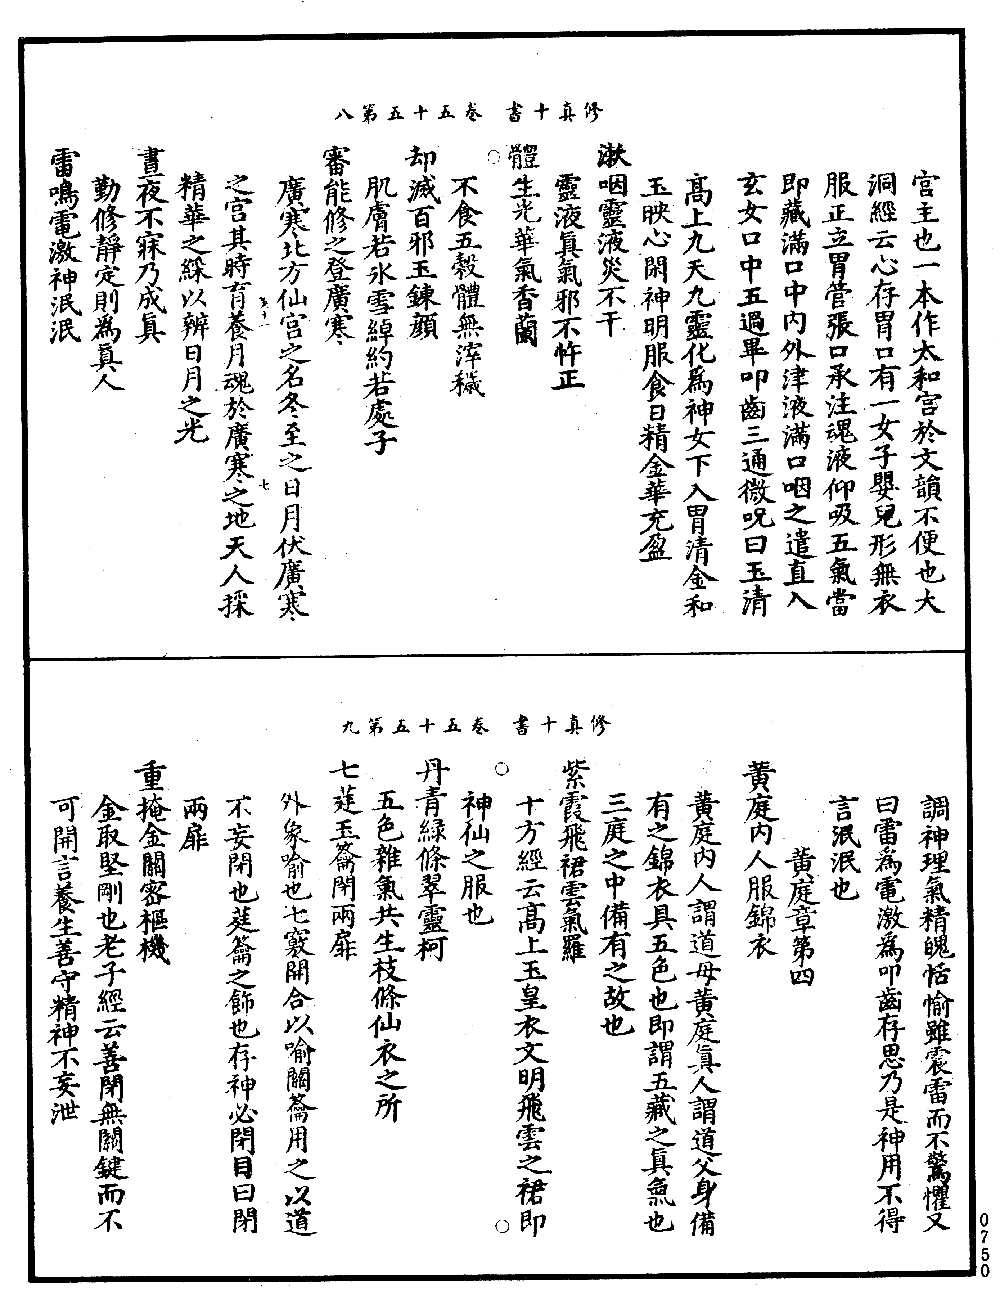 修真十書　卷五十五第八
宮主也一本作太和宮於文韻不便也大
洞經云心存胃口有一女子嬰兒形無衣
服正立胃管張口承注魂液仰吸五氣當
即藏滿口中內外津液滿口咽之遣直入
玄女口中五過畢叩齒三通微呪曰玉清
高上九天九靈化爲神女下入胃清金和
玉映心開神明服食日精金華充盈
漱咽靈液災不干
靈液眞氣邪不忤正
體生光華氣香蘭
不食五穀體無滓穢
却滅百邪玉鍊顏
肌膚若氷雪綽約若處子
審能修之登廣寒
廣寒北方仙宮之名冬至之日月伏廣寒
之宮其時育養月魂於廣寒之地天人採
精華之綵以辨日月之光
晝夜不寐乃成眞
勤修靜定則爲眞人
雷鳴電激神泯泯
修真十書　卷五十五第九
調神理氣精魄恬愉雖震雷而不驚懼又
曰雷爲電激爲叩齒存思乃是神用不得
言泯泯也
黃庭章第四
黃庭內人服錦衣
黃庭內人謂道母黃庭眞人謂道父身備
有之錦衣具五色也即謂五藏之眞氣也
三庭之中備有之故也
紫霞飛裙雲氣羅
十方經云高上玉皇衣文明飛雲之裙即
神仙之服也
丹青綠條翠靈柯
五色雜氣共生枝條仙衣之所
七莛玉籥閉兩扉
外象喻也七竅開合以喻關籥用之以道
不妄閉也莛籥之飾也存神必閉目曰閉
兩扉
重掩金關密樞機
金取堅剛也老子經云善閉無關鍵而不
可開言養生善守精神不妄泄
0750